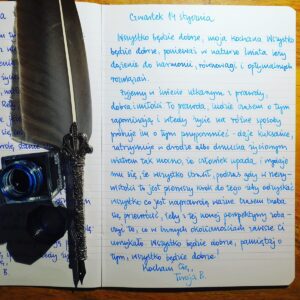 Czwartek 14 stycznia
Wszystko będzie dobrze, moja kochana. Wszystko
będzie dobrze, ponieważ w naturze świata leży
dążenie do harmonii, równowagi i optymalnych
rozwiązań.
Żyjemy w świecie utkanym z prawdy,
dobra i miłości. To prawda, ludzie czasem o tym
zapominają i wtedy życie na różne sposoby
próbuje im o tym przypomnieć - daje kuksańce,
zatrzymuje w drodze albo dmucha życiowym
wiatrem tak mocno, że człowiek upada, i wydaje
mu się, że wszystko stracił, podczas gdy w rzeczy-
wistości to jest pierwszy krok do tego żeby odzyskać
wszystko co jest naprawdę ważne. Czasem trzeba
się przewrócić, żeby z tej nowej perspektywy zoba-
czyć to, co w innych okolicznościach zawsze Ci
umykało. Wszystko będzie dobrze, pamiętaj o
tym, wszystko będzie dobrze!
Kocham Cię,
Twoja B.
B.